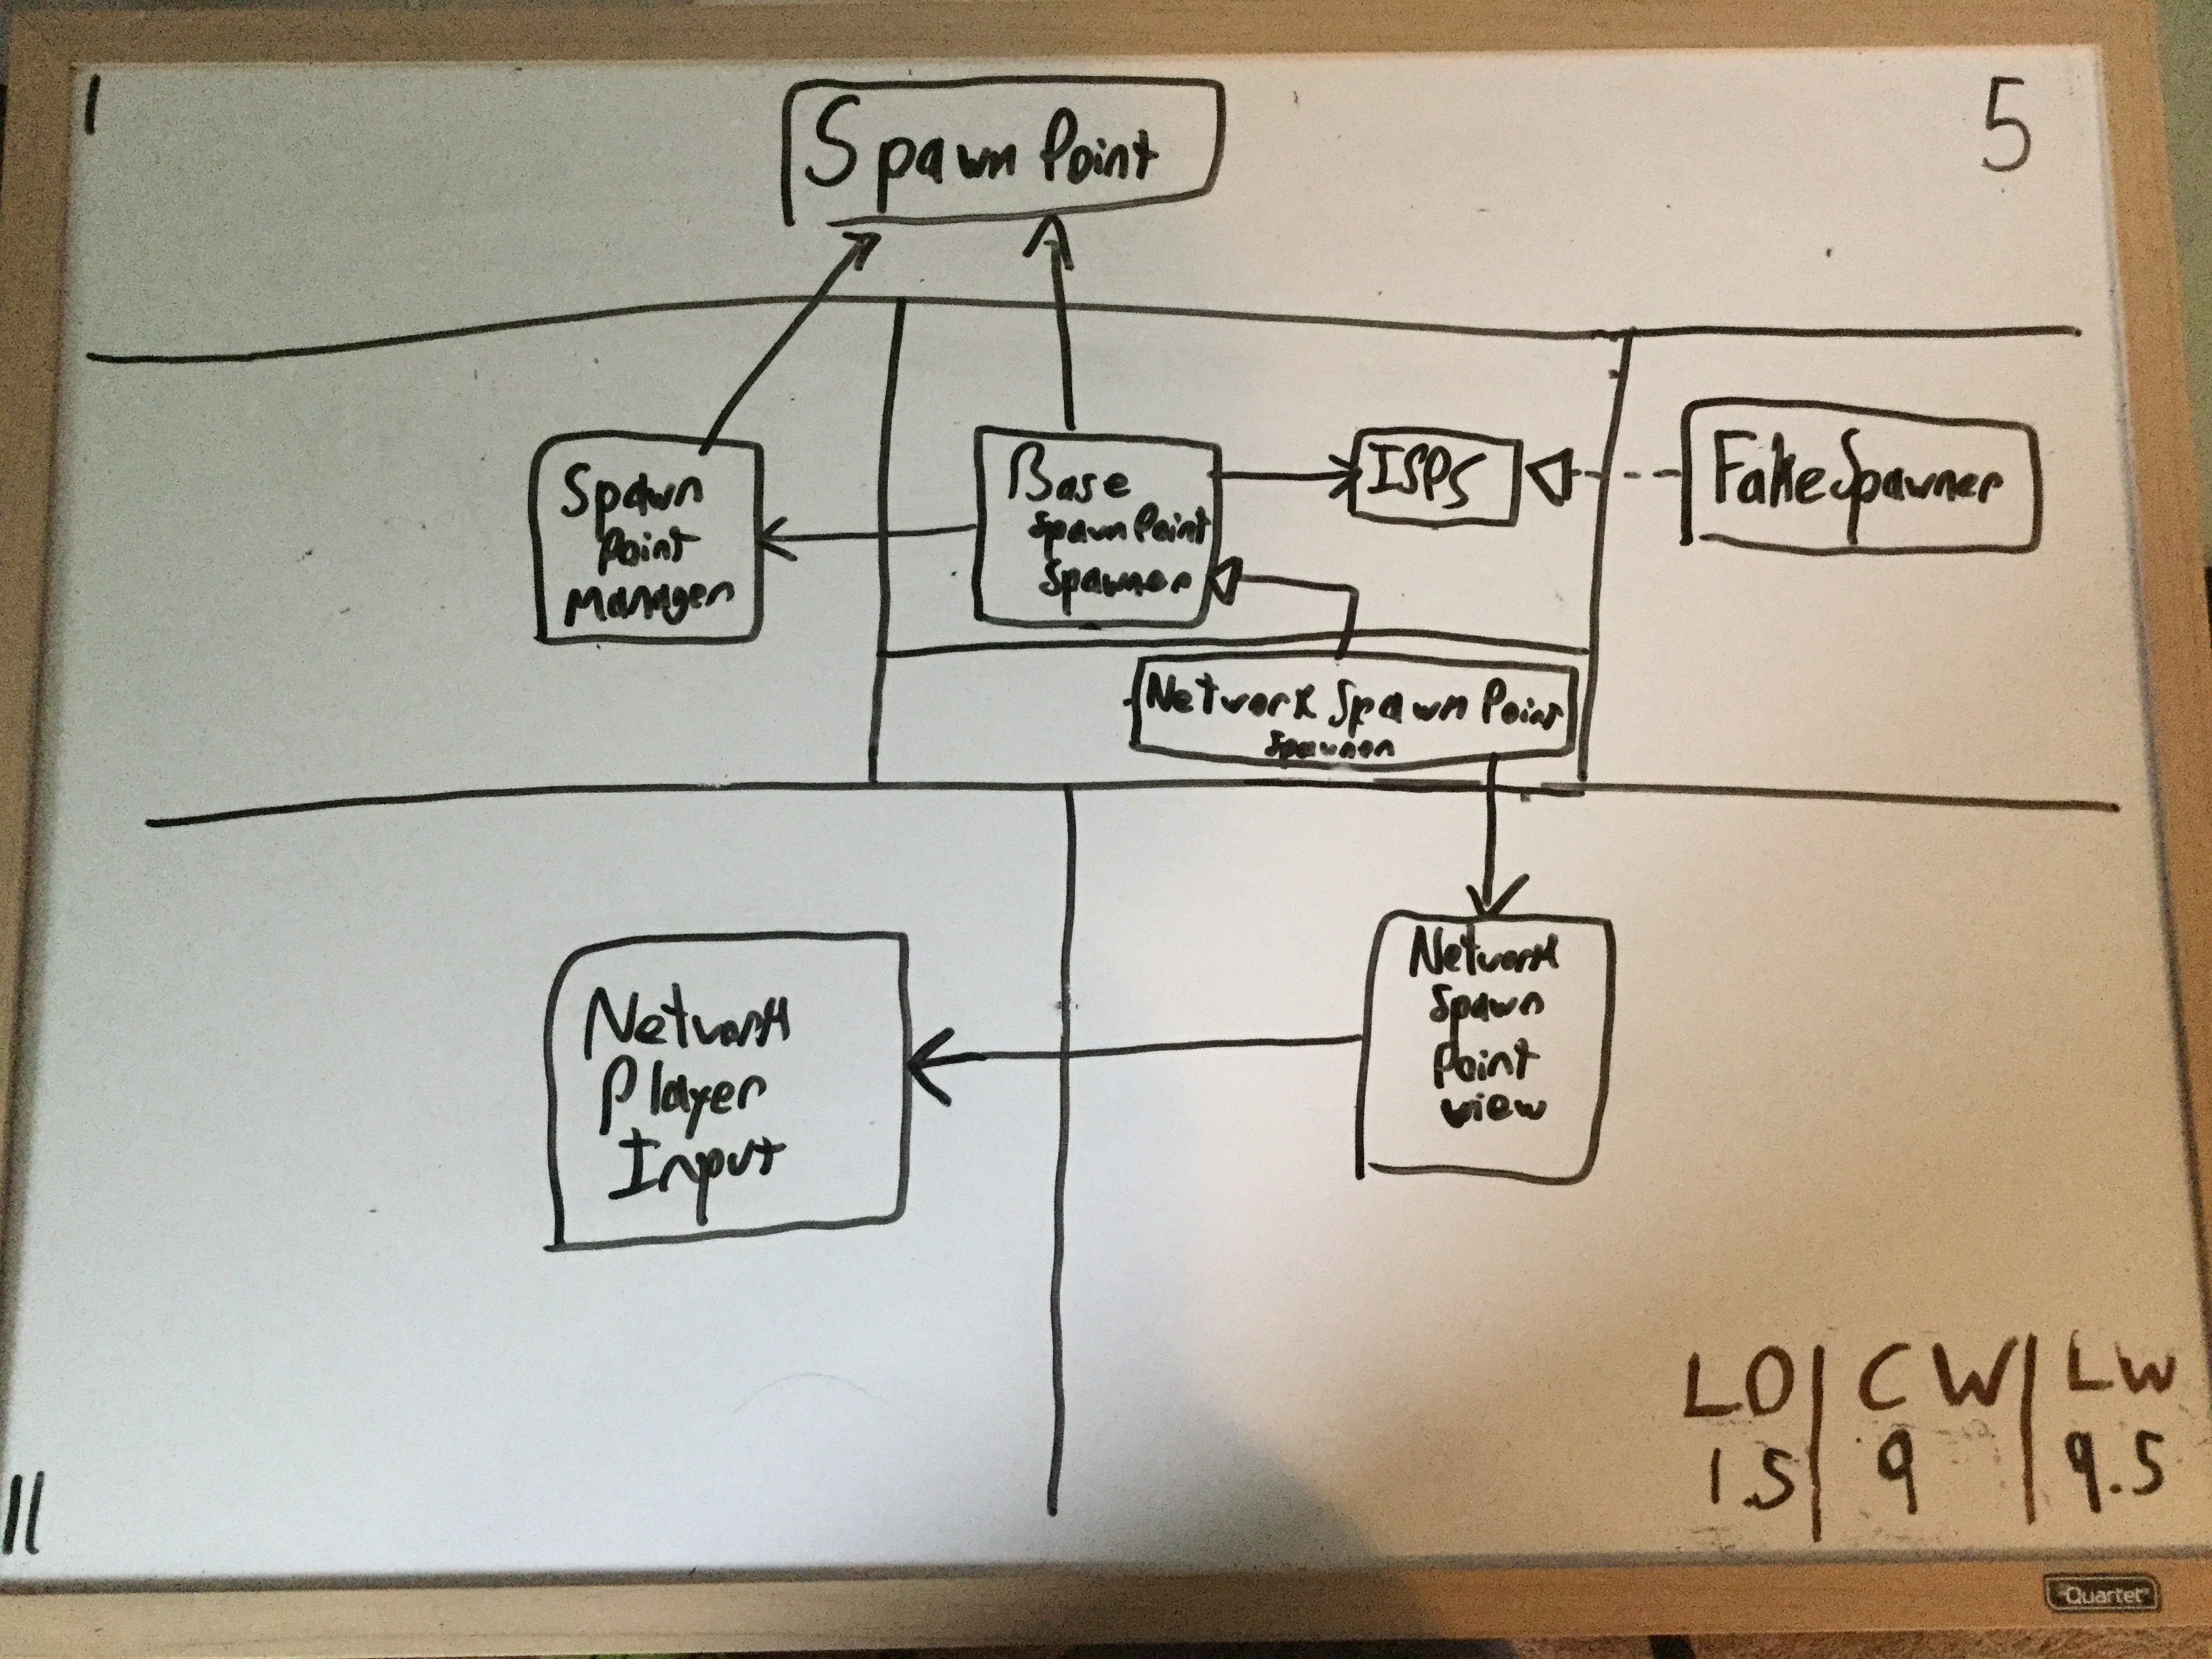 1
5
Spawn Point
Spawn
Point
Manager
Base
Spawn Point
Spawner
ISPS
FakeSpawner
Network Spawn Point
Spawner
Network
Player
Input
Network
Spawn
Point
view
LO | CW | LW
1.5 | 9 | 9.5
11
Quartet